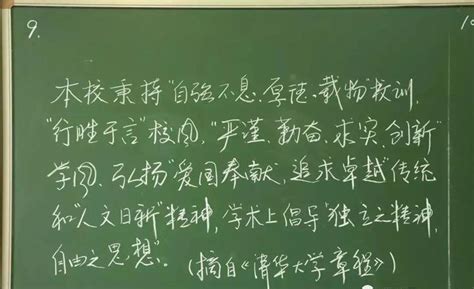 9.
本校秉持"自强不息、厚德载物"校训,
"行胜于言"校风,"严谨、勤奋、求实、创新"
学风、弘扬"爱国奉献,追求卓越"传统
和"人文日新"精神,学术上倡导"独立之精神,
自由之思想"。(摘自《清华大学章程》)